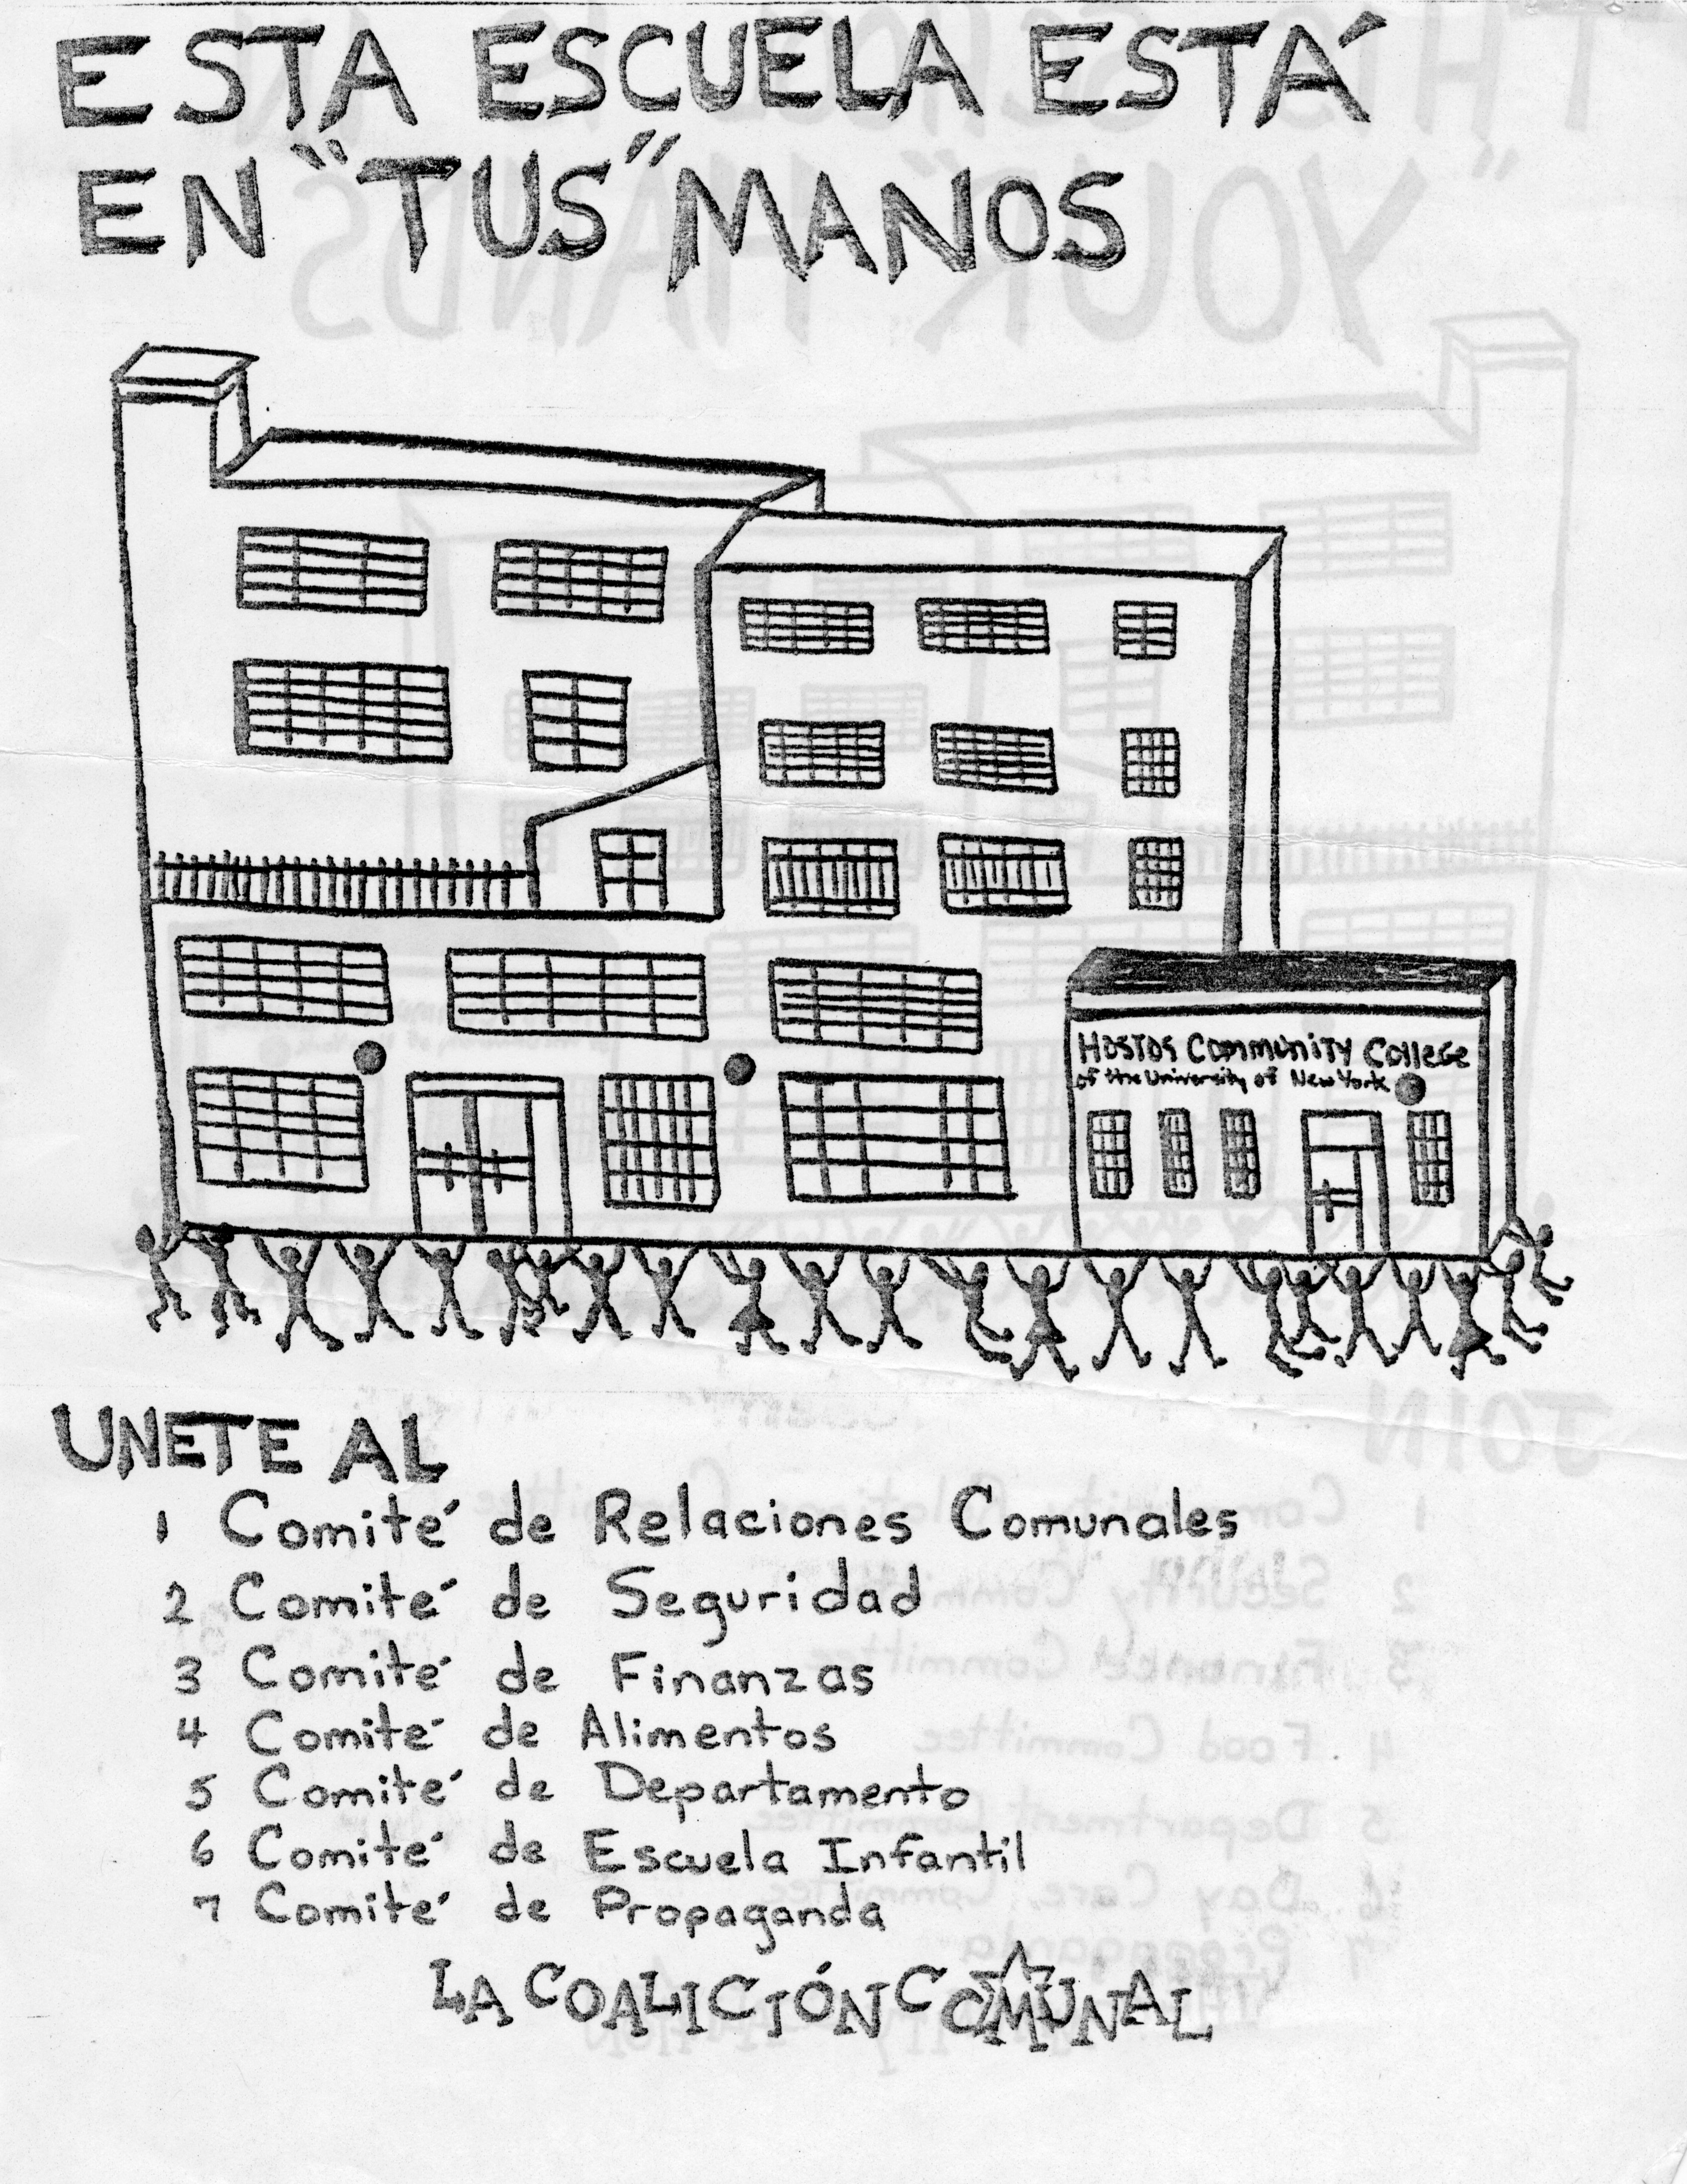 ESTA ESCUELA ESTÁ
EN "TUS" MANOS
HOSTOS COMMUNITY COLLEGE
of the University of New York
UNETE AL
1 Comité de Relaciones Comunales
2 Comité de Seguridad
3 Comité de Finanzas
4 Comité de Alimentos
5 Comité de Departamento
6 Comité de Escuela Infantil
7 Comité de Propaganda
LA COALICIÓN COMUNAL